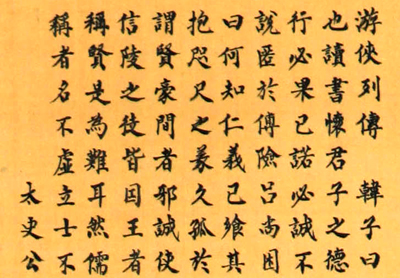 游俠列傳 韓子曰
也讀書懷君子之德
行必果已諾必誠不
說匿於傅險呂尚困
曰何知仁義已飨其
抱咫尺之義久孤於
謂賢豪間者邪誠使
信陵之徒皆因王者
稱賢是為難耳然儒
稱者名不虛立士不
太史公